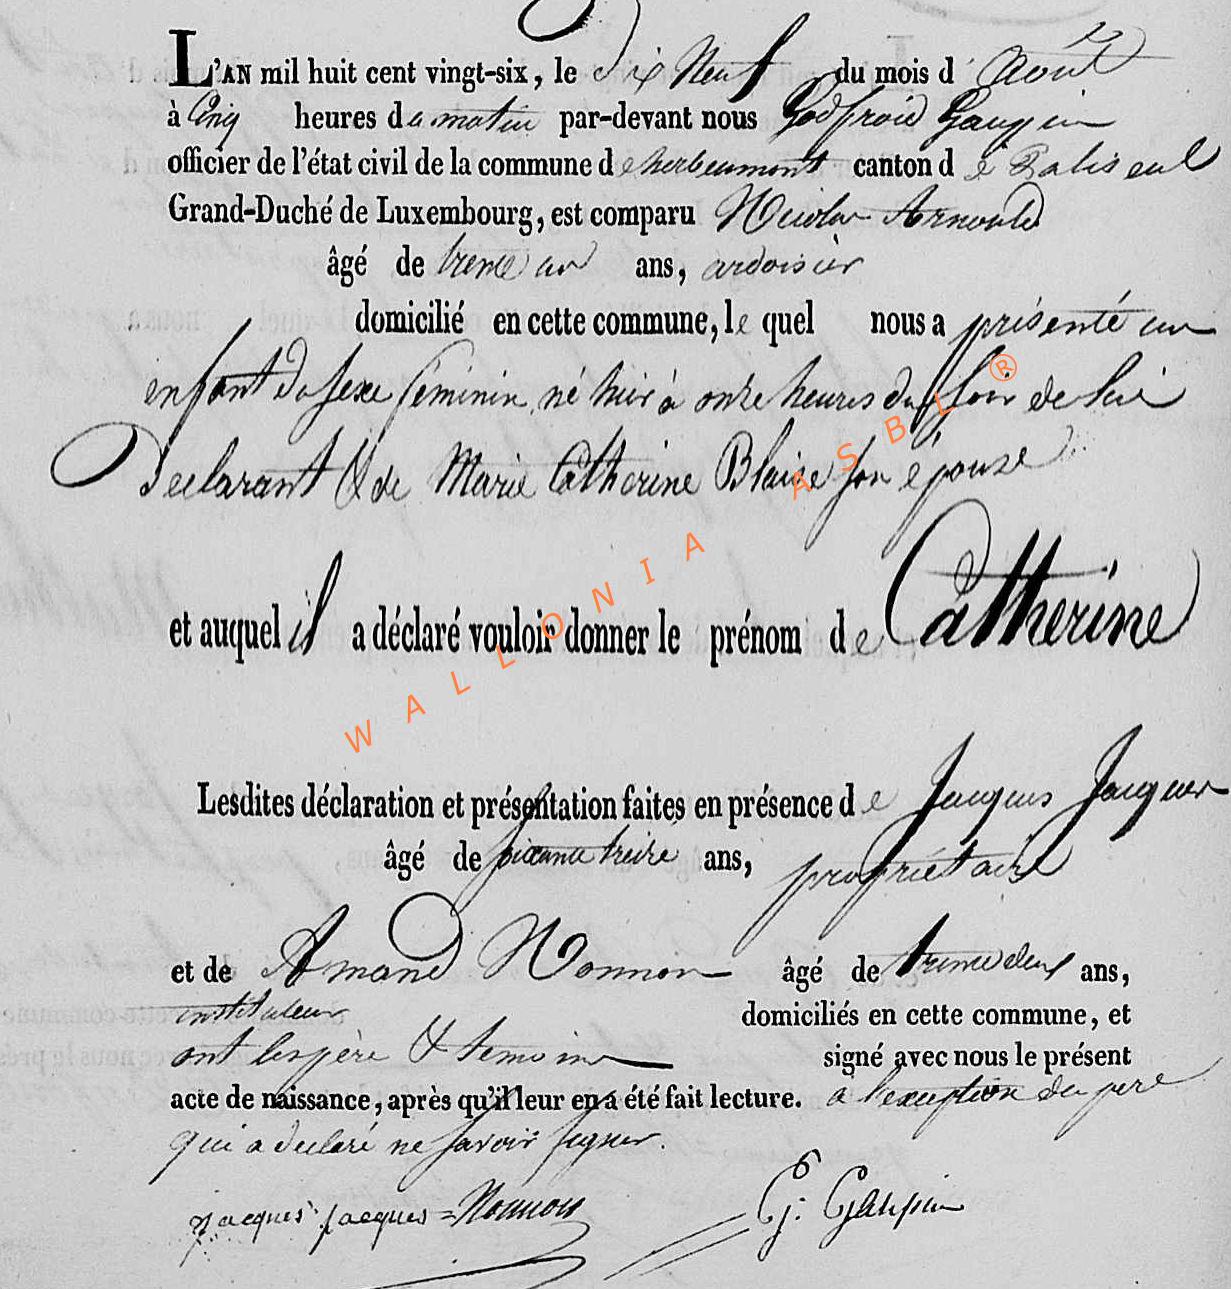 L'AN mil huit cent vingt-six, le dix Neuf du mois d'Août
à Cinq heures du matin par-devant nous Godfroid Gaupin
officier de l'état civil de la commune de herbeumont canton de Paliseul
Grand-Duché de Luxembourg, est comparu Nicolas Arnould
âgé de trente un ans, ardoisier
domicilié en cette commune, le quel nous a présenté un
enfant du sexe féminin né hier à onze heures du soir de lui
Déclarant & de Marie Catherine Blaise son épouse
et auquel il a déclaré vouloir donner le prénom de Catherine
Lesdites déclaration et présentation faites en présence de Jacques Jacques
âgé de soixante treize ans, propriétaire
et de Amand Nonnon âgé de trente deux ans,
instituteur domiciliés en cette commune, et
ont les père & temoins signé avec nous le présent
acte de naissance, après qu'il leur en a été fait lecture. à l'exception du père
qui a declaré ne savoir signer.
jacques jacques = Nonnon G: Gaupin
WALLONIA ASBL ®